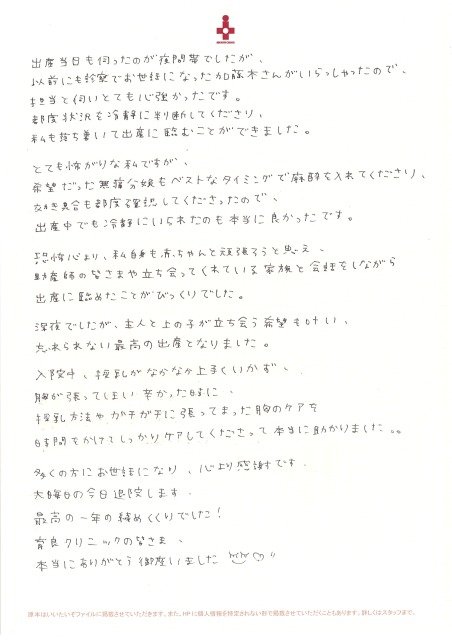 出産当日も伺ったのが夜間帯でしたが、
以前にも診察でお世話になった加藤木さんがいらっしゃったので、
担当と伺いとても心強かったです。
都度状況を冷静に判断してくださり、
私も落ち着いて出産に臨むことができました。
とても怖がりな私ですが、
希望だった無痛分娩もベストなタイミングで麻酔を入れてくださり、
効き具合も都度確認してくださったので、
出産中でも冷静にいられたのも本当に良かったです。
恐怖心より、私自身も赤ちゃんと頑張ろうと思え、
助産師の皆さまや立ち会ってくれている家族と会話をしながら
出産に臨めたことがびっくりでした。
深夜でしたが、主人と上の子が立ち会う希望も叶い、
忘れられない最高の出産となりました。
入院中、授乳がなかなか上手くいかず、
胸が張ってしまい辛かった時に、
授乳方法やガチガチに張ってまった胸のケアを
時間をかけてしっかりケアしてくださって本当に助かりました。。
多くの方にお世話になり、心より感謝です.
大晦日の今日退院します.
最高の一年の締めくくりでした!
育良クリニックの皆さま、
本当にありがとう御座いました
原本はいいたいぞファイルに掲載させていただきます。また、HPに個人情報を特定されない形で掲載させていただくこともあります。詳しくはスタッフまで。